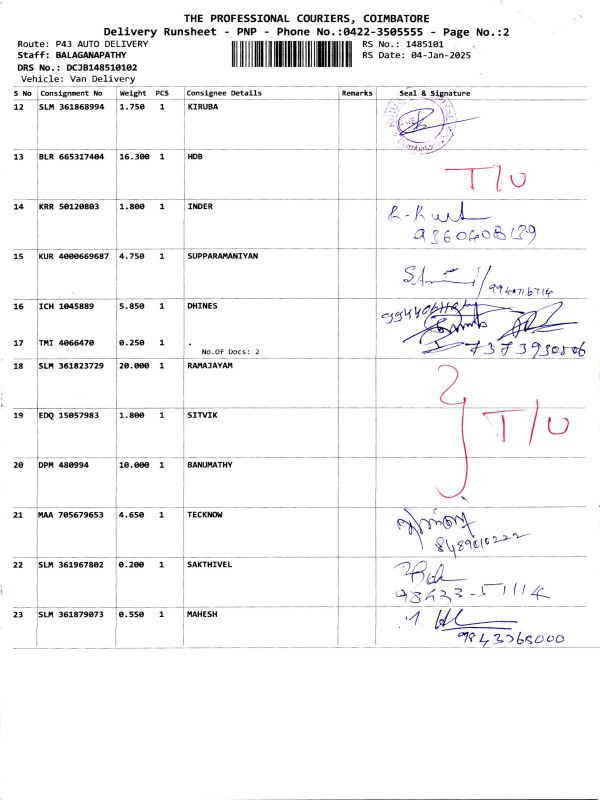 THE PROFESSIONAL COURIERS, COIMBATORE
Delivery Runsheet - PNP - Phone No.:0422-3505555 - Page No.:2
Route: P43 AUTO DELIVERY
RS No.: 1485101
Staff: BALAGANAPATHY
RS Date: 04-Jan-2025
DRS No.: DCJB148510102
Vehicle: Van Delivery
S No Consignment No Weight PCS Consignee Details Remarks Seal & Signature
12 SLM 361868994 1.750 1 KIRUBA
13 BLR 665317404 16.300 1 HDB
T/U
14 KRR 50120803 1.800 1 INDER
15 KUR 4000669687 4.750 1 SUPPARAMANIYAN
9940716714
16 ICH 1045889 5.850 1 DHINES
17 TMI 4066470 0.250 1 .
No.Of Docs: 2
7373930506
18 SLM 361823729 20.000 1 RAMAJAYAM
19 EDQ 15057983 1.800 1 SITVIK
T/U
20 DPM 480994 10.000 1 BANUMATHY
21 MAA 705679653 4.650 1 TECKNOW
8489010222
22 SLM 361967802 0.200 1 SAKTHIVEL
98423-51114
23 SLM 361879073 0.550 1 MAHESH
9843265000